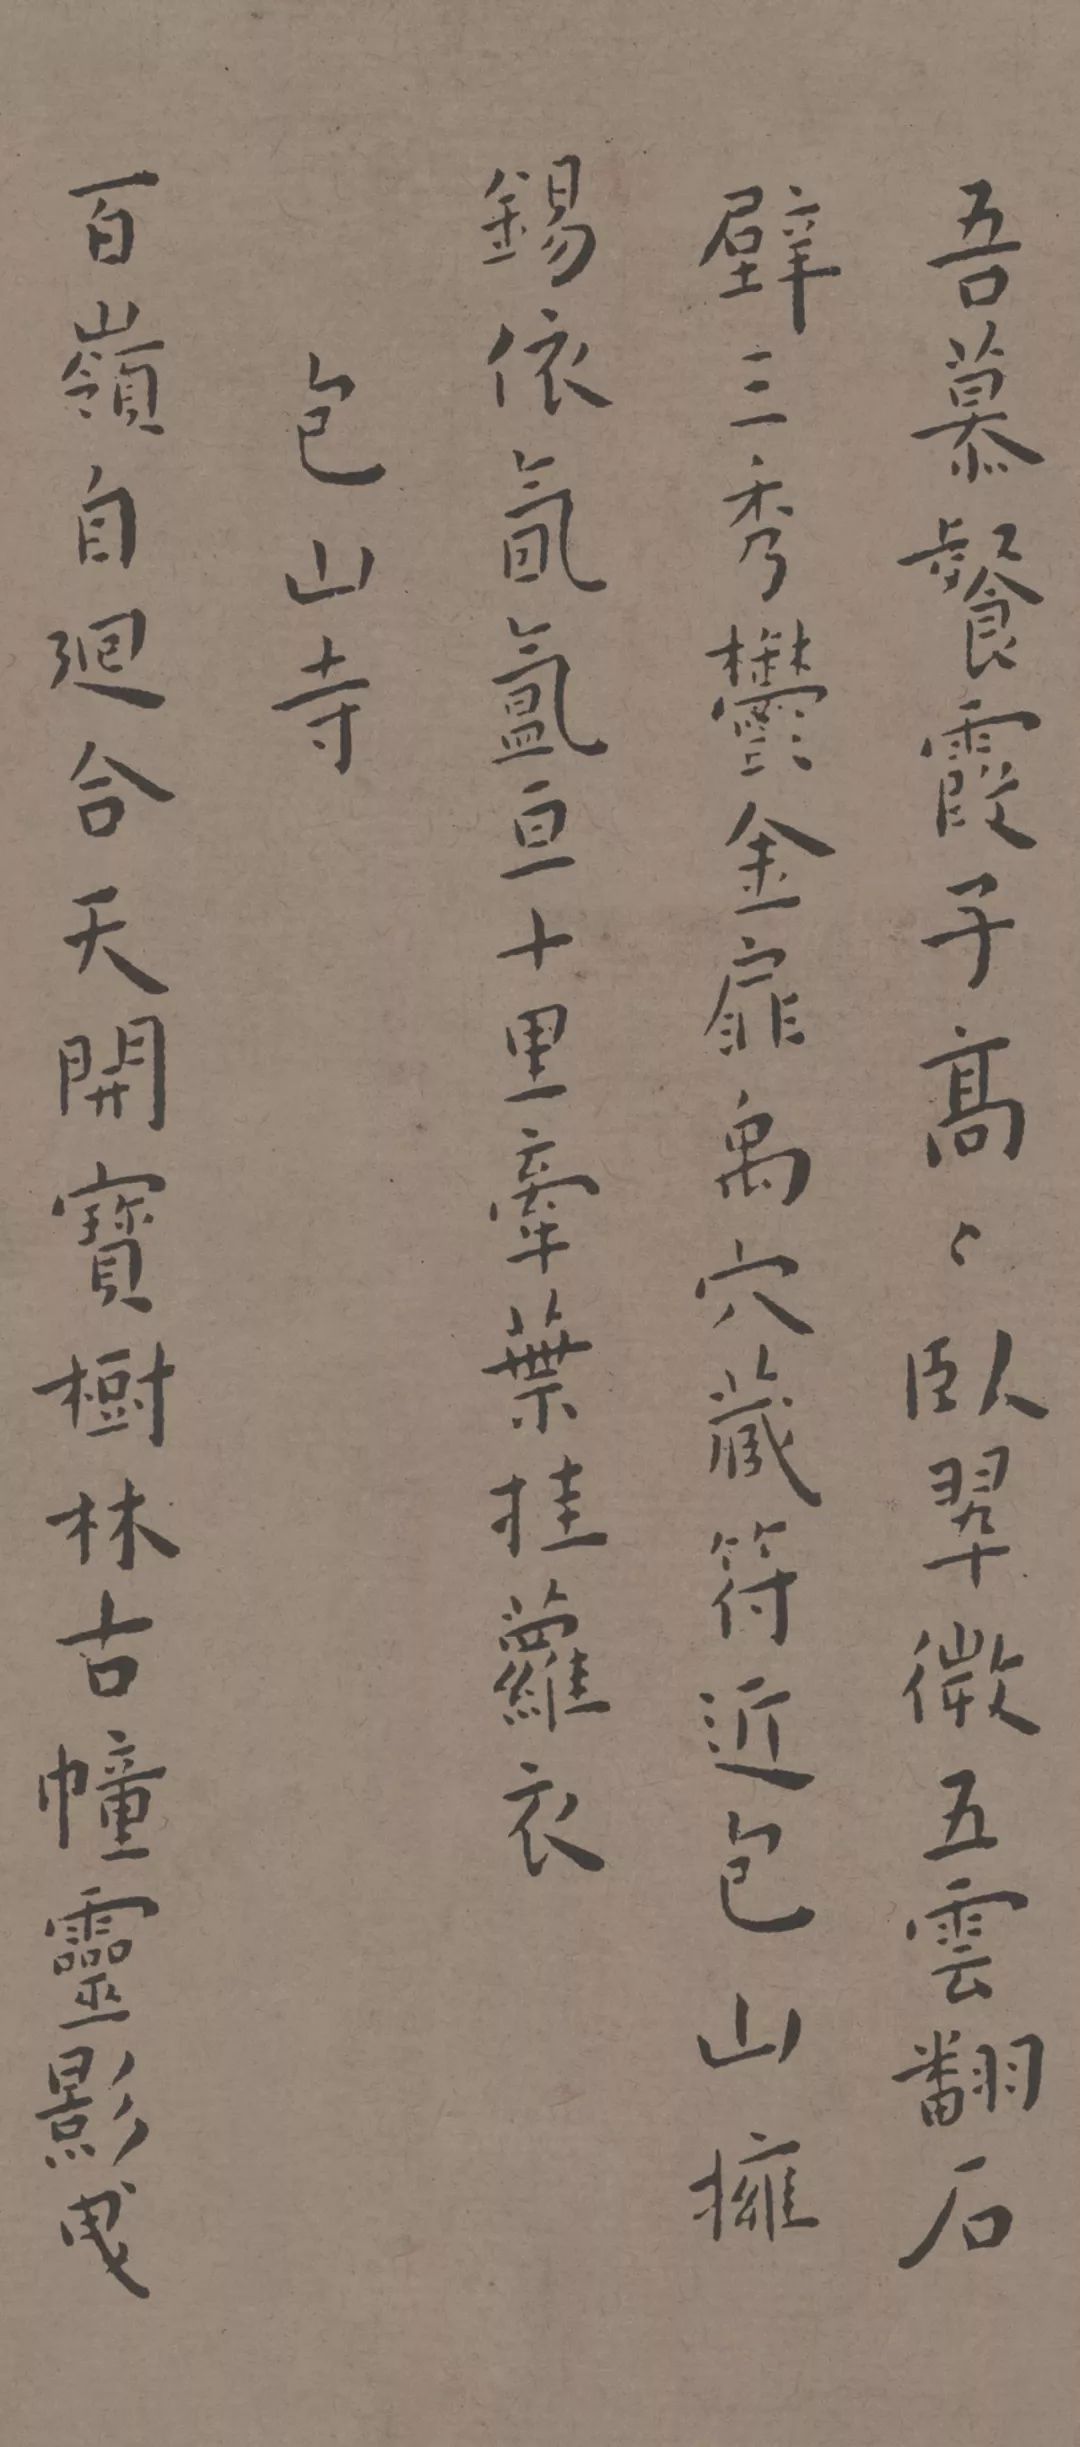 吾慕餐霞子高〻臥翠微五雲翻石
壁三秀鬱金扉禹穴藏符近包山擁
錫依氤氳亘十里牽葉挂蘿衣
包山寺
百嶺自迴合天開寶樹林古幢靈影曳